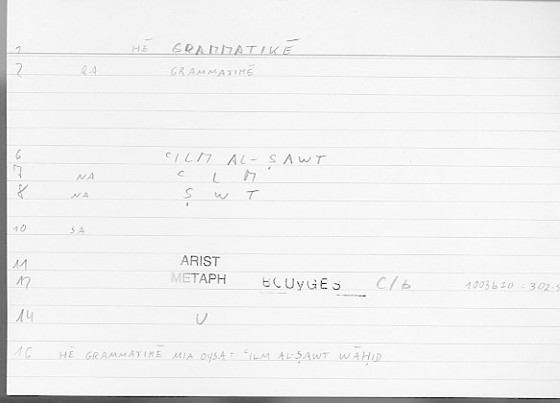 1 HĒ GRAMMATIKĒ
2 QA GRAMMATIKĒ
6 ʿILM AL-ṢAWT
7 NA ʿ L M
8 NA Ṣ W T
10 SA
11 ARIST
12 METAPH BOUYGES C/b 1003b20 = 302.5
14 U
16 HĒ GRAMMATIKĒ MIA OYSA = ʿILM AL-ṢAWT WĀḤID